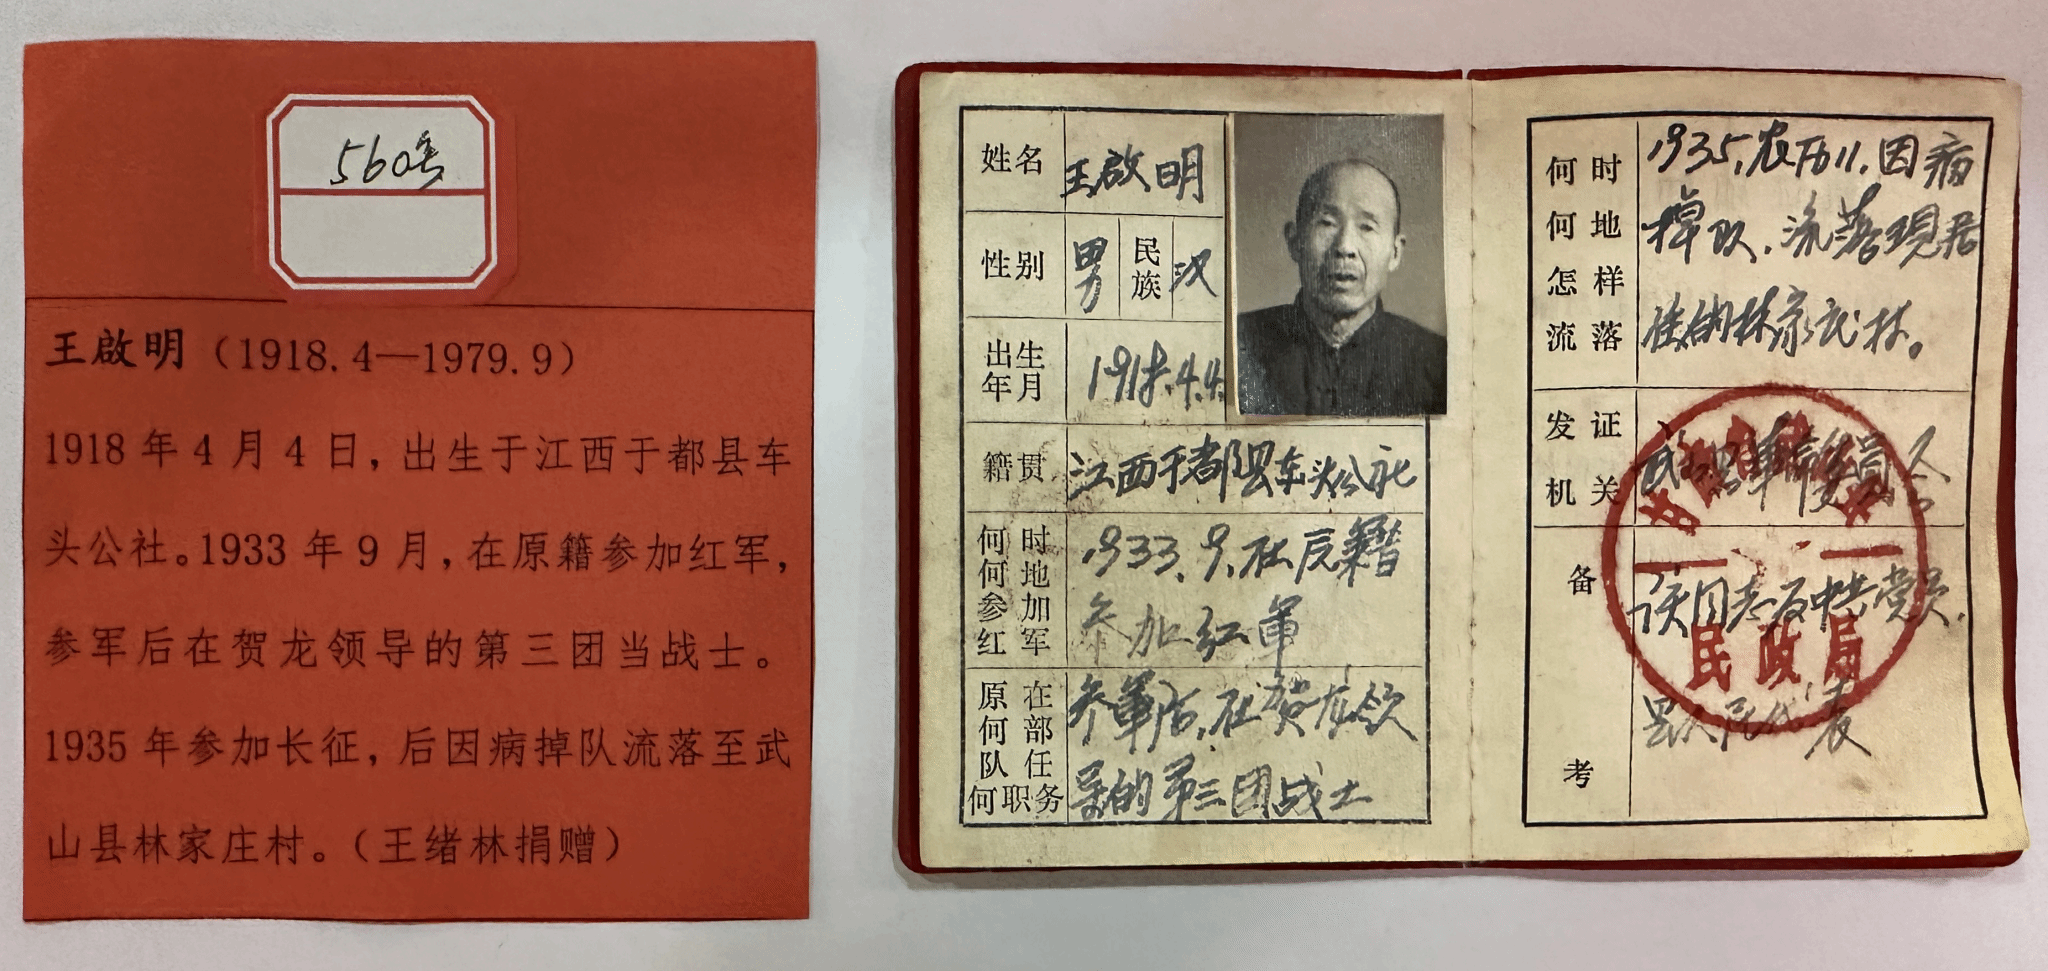 560号
王啟明（1918.4—1979.9）
1918年4月4日，出生于江西于都县车
头公社。1933年9月，在原籍参加红军，
参军后在贺龙领导的第三团当战士。
1935年参加长征，后因病掉队流落至武
山县林家庄村。（王绪林捐赠）
姓名 王啟明
性别 男 民族 汉
出生年月 1918.4.4.
籍贯 江西于都县车头公社
何时何地参加红军 1933.9.在原籍
参加红軍
原在何部队任何职务 参軍后,在贺龙领
导的第三团战士
何时何地怎样流落 1935.农历11.因病
掉队.流落現居
住的林家庄村。
发证机关
备考 该同志系中共党员.
县人民代表
民政局